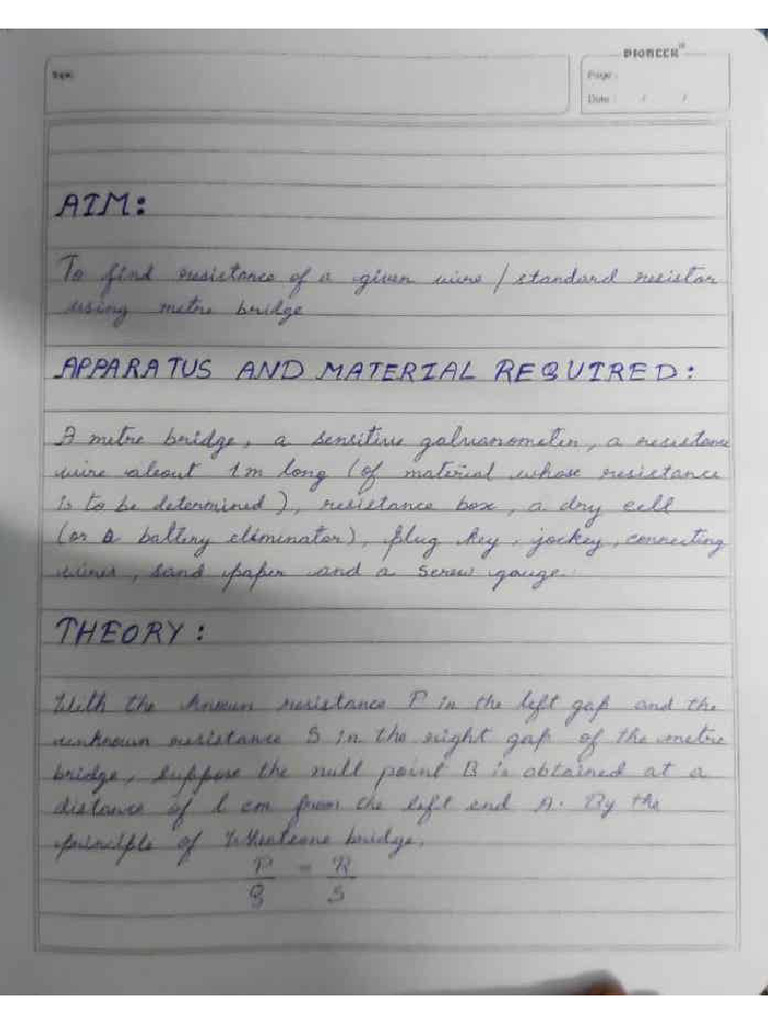 PIONEER
Topic
Page :
Date : / /
AIM:
To find resistance of a given wire / standard resistor
using metre bridge
APPARATUS AND MATERIAL REQUIRED:
A metre bridge, a sensitive galvanometer, a resistance
wire about 1m long (of material whose resistance
is to be determined), resistance box, a dry cell
(or a battery eliminator), plug key, jockey, connecting
wires, sand paper and a screw gauge.
THEORY:
With the known resistance P in the left gap and the
unknown resistance S in the right gap of the metre
bridge, suppose the null point B is obtained at a
distance of l cm from the left end A. By the
principle of bridge,
P = R
Q S